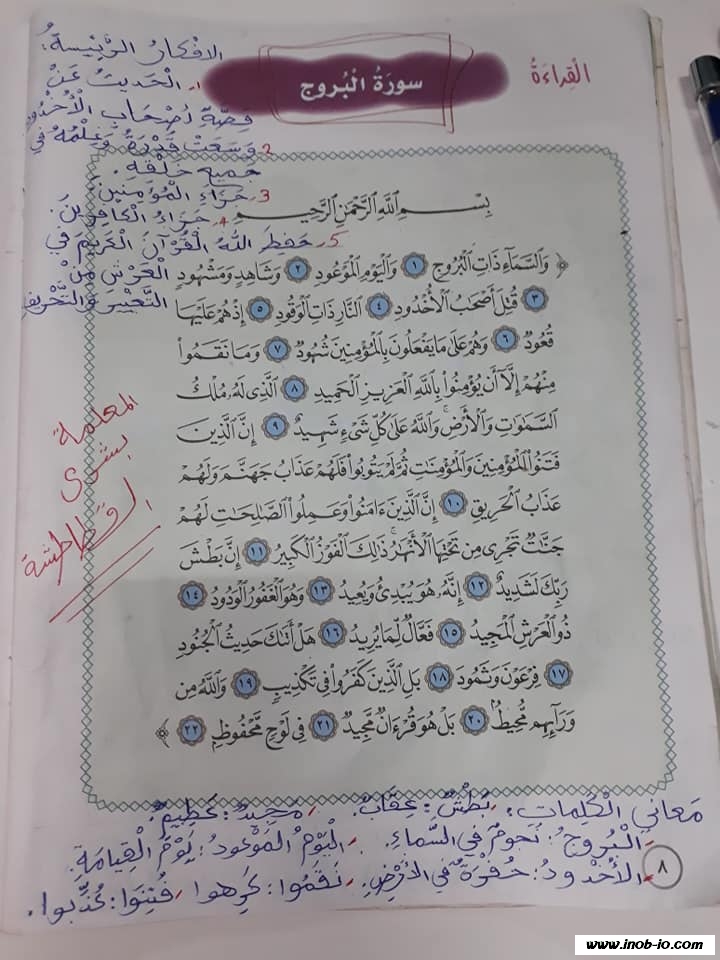 القِراءَةُ
سورَةُ الْبُروجِ
الافْكارُ الرَّئيسَةُ:
1- الْحَديثُ عَنْ
قِصَّةِ أصْحابِ الْأُخْدودِ
2- وَسِعَتْ قُدْرَةُ وَعِلْمُهُ في
جَميعِ خَلْقِهِ.
3- جَزاءُ الْمُؤْمِنينَ.
4- جَزاءُ الْكافِرينَ.
5- حَفِظَ اللهُ الْقُرْآنَ الْكَريمَ في
الْعَرْشِ مِنْ
التَّغْييرِ وَالتَّحْريفِ
بِسْمِ ٱللَّهِ ٱلرَّحْمَٰنِ ٱلرَّحِيمِ
﴿ وَٱلسَّمَآءِ ذَاتِ ٱلْبُرُوجِ ١ وَٱلْيَوْمِ ٱلْمَوْعُودِ ٢ وَشَاهِدٍ وَمَشْهُودٍ
٣ قُتِلَ أَصْحَٰبُ ٱلْأُخْدُودِ ٤ ٱلنَّارِ ذَاتِ ٱلْوَقُودِ ٥ إِذْ هُمْ عَلَيْهَا
قُعُودٌ ٦ وَهُمْ عَلَىٰ مَا يَفْعَلُونَ بِٱلْمُؤْمِنِينَ شُهُودٌ ٧ وَمَا نَقَمُوا۟
مِنْهُمْ إِلَّآ أَن يُؤْمِنُوا۟ بِٱللَّهِ ٱلْعَزِيزِ ٱلْحَمِيدِ ٨ ٱلَّذِى لَهُۥ مُلْكُ
ٱلسَّمَٰوَٰتِ وَٱلْأَرْضِ ۚ وَٱللَّهُ عَلَىٰ كُلِّ شَىْءٍ شَهِيدٌ ٩ إِنَّ ٱلَّذِينَ
فَتَنُوا۟ ٱلْمُؤْمِنِينَ وَٱلْمُؤْمِنَٰتِ ثُمَّ لَمْ يَتُوبُوا۟ فَلَهُمْ عَذَابُ جَهَنَّمَ وَلَهُمْ
عَذَابُ ٱلْحَرِيقِ ١٠ إِنَّ ٱلَّذِينَ ءَامَنُوا۟ وَعَمِلُوا۟ ٱلصَّٰلِحَٰتِ لَهُمْ
جَنَّٰتٌ تَجْرِى مِن تَحْتِهَا ٱلْأَنْهَٰرُ ۚ ذَٰلِكَ ٱلْفَوْزُ ٱلْكَبِيرُ ١١ إِنَّ بَطْشَ
رَبِّكَ لَشَدِيدٌ ١٢ إِنَّهُۥ هُوَ يُبْدِئُ وَيُعِيدُ ١٣ وَهُوَ ٱلْغَفُورُ ٱلْوَدُودُ ١٤
ذُو ٱلْعَرْشِ ٱلْمَجِيدُ ١٥ فَعَّالٌ لِّمَا يُرِيدُ ١٦ هَلْ أَتَىٰكَ حَدِيثُ ٱلْجُنُودِ
١٧ فِرْعَوْنَ وَثَمُودَ ١٨ بَلِ ٱلَّذِينَ كَفَرُوا۟ فِى تَكْذِيبٍ ١٩ وَٱللَّهُ مِن
وَرَآئِهِم مُّحِيطٌۢ ٢٠ بَلْ هُوَ قُرْءَانٌ مَّجِيدٌ ٢١ فِى لَوْحٍ مَّحْفُوظٍۭ ٢٢ ﴾
المعلمة
بشرى
القطاطشة
مَعاني الْكَلِماتِ: بَطْشٌ: عِقابٌ. مَجيدٌ: عَظيمٌ.
- الْبُروجُ: نُجومٌ في السَّماءِ. الْيَوْمُ الْمَوْعودُ: يَوْمُ الْقِيامَةِ.
- الْأُخْدودُ: حُفْرَةٌ في الْأَرْضِ. نَقَموا: كَرِهوا فُتِنوا: عُذِّبوا.
٨
www.inob-io.com